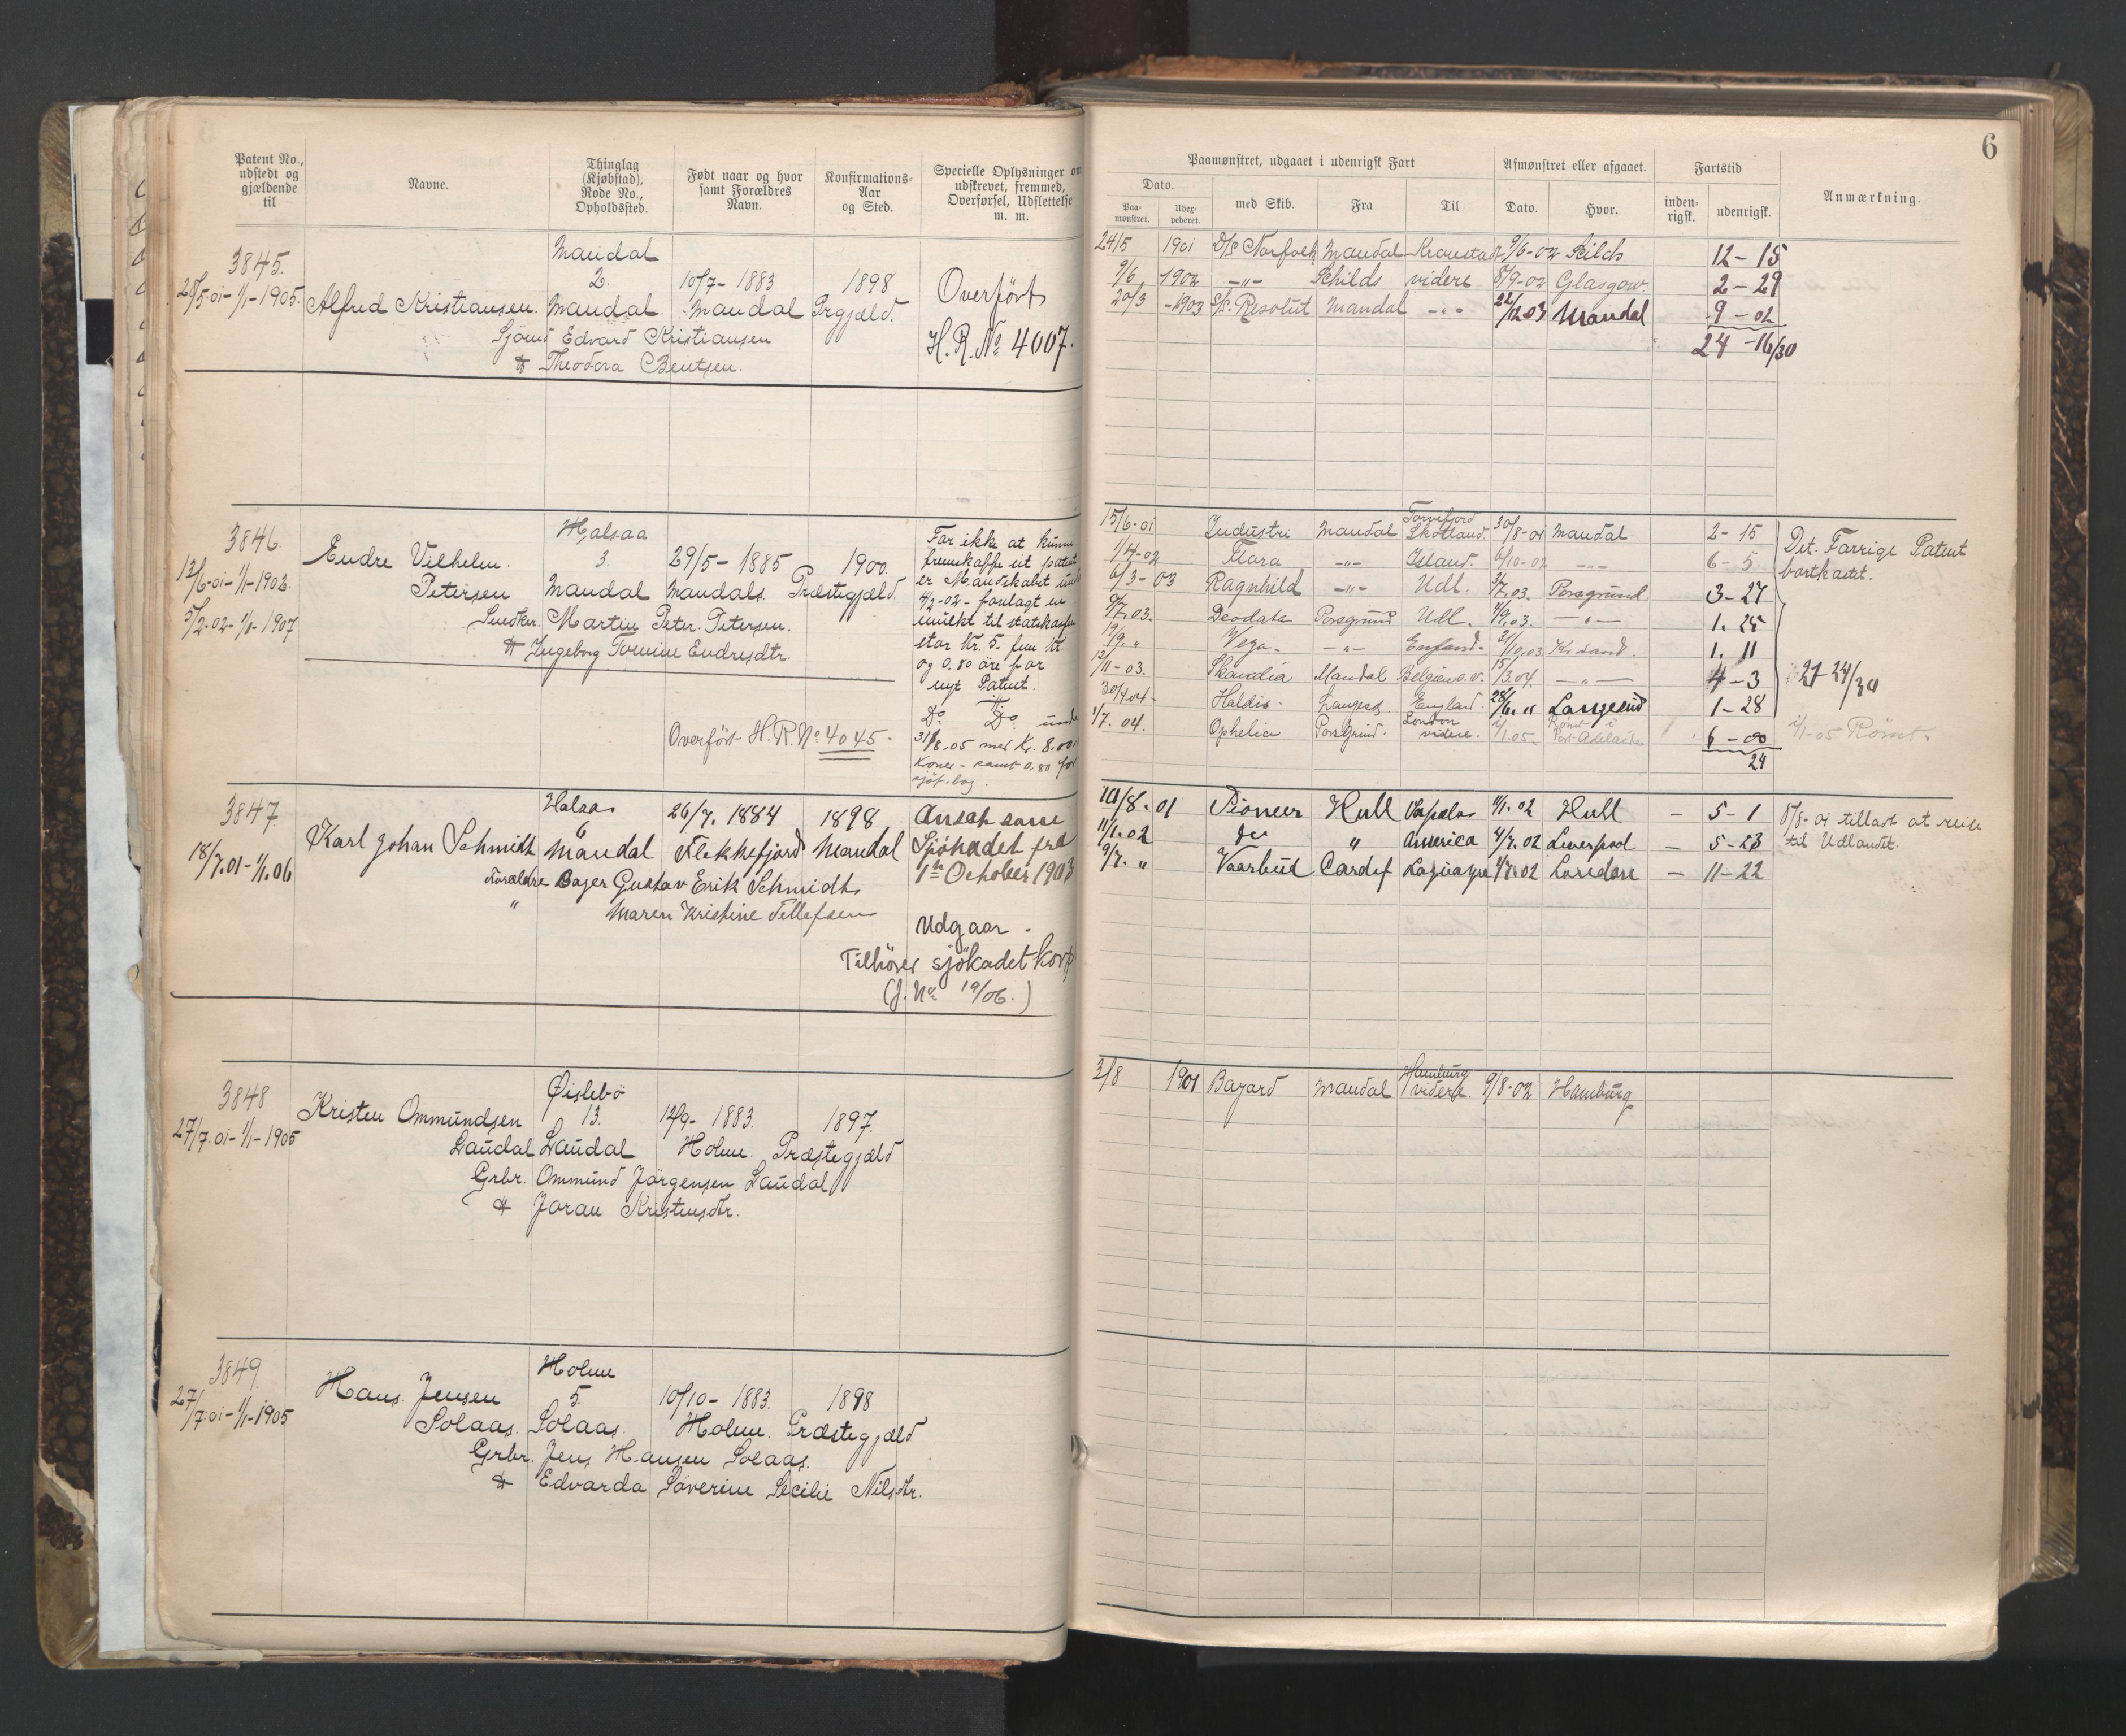 6
Patent No., udstedt og gjældende til
Navne.
Thinglag (Kjøbstad), Rode No., Opholdssted.
Født naar og hvor samt Forældres Navn.
Konfirmations-Aar og Sted.
Specielle Oplysninger om udskrevet, fremmed, Overførsel, Udslettelse m. m.
Paamønstret, udgaaet i udenrigsk Fart
Afmønstret eller afgaaet.
Fartstid
Anmærkning.
Dato.
Paa-mønstret.
Udex-pederet.
med Skib.
Fra
Til
Dato.
Hvor.
inden-rigsk.
udenrigsk.
3845.
28/5-01-1/1-1905.
Alfred Kristiansen.
Mandal
2.
Mandal
10/7-1883
Mandal
1898
Prgjæld.
Sjømd Edvard Kristiansen
& Theodora Bentsen.
Overført
H.R. No 4007.
24/5 1901 D/S Norfolk Mandal Kronstad 9/6-02 Schilds 12-15
9/6 1902 -"- Schilds videre 8/9-02 Glasgow. 2-29
20/3 -1903 S/S. Resolut Mandal -..- 22/12 03 Mandal 9-02
24-16/30
3846.
12/6-01-1/1-1903.
5/2-02-1/1-1907
Endre Vilhelm.
Petersen
Halsaa
3.
Mandal
29/5-1885
Mandals
1900.
Præstegjæld.
Snedker. Martin Peter Petersen.
& Ingeborg Tomine Endresdtr.
For ikke at kunne
fremskaffe sit patent
er Mandskabet under
4/2-02- forelagt en
mulkt til statskassen
stor Kr. 5. fem kr.
og 0.80 øre for
nyt Patent.
Do. Do. under
31/8.05 med Kr. 8.00
Kroner - samt 0,80 for
sjøf.bog.
Overført H.R. No 4045.
15/6-01 Industri Mandal Skotland. 30/8-01 Mandal 2-15
1/4-02 Flora -"- Island. 6/10-02 -..- 6-5
6/3-03 Ragnhild -"- Udl. 3/7.03. Porsgrund 3-27
9/7.03. Deodata Porsgrund Udl. 4/9.03. -"- 1.25
19/9. " Vega. -"- England. 31/10.03 Kr.sand. 1. 11
12/11-03. Skandia Mandal Belgien o.v. 15/3.04. -"- 4-3
30/4.04- Haldis. Langesd. England. 28/6. " Langesund 1-28
1/7. 04. Ophelia Porsgrund. London videre. 1/1.05. Rømt i Port Adelaide 6-00
24
Det Forrige Patent
bortkastet.
21-24/30
1/1-05 Rømt.
3847.
18/7.01-1/1.06
Karl Johan Schmidt
Halsaa
6
Mandal
26/7. 1884
Flekkefjord
1898
Mandal
Forældre Bager Gustav Erik Schmidt
" Maren Kristine Tellefsen
Ansat som
Sjøkadet fra
1ste October 1903
Udgaar.
Tilhører sjøkadetkorps
(J. No 19/06.)
10/8.01 Pioneer Hull 11/1.02 Hull - 5-1
11/1.02 do " America 4/7.02 Liverpool - 5-23
9/7. " Vaarbud Cardif Laguayra Loredore - 11-22
8/8-01 tilladt at reise
til Udlandet.
3848
27/7.01-1/1-1905
Kristen Ommundsen
Laudal
Øislebø
13.
Laudal
12/9-1883.
Holme.
1897.
Præstegjæld
Grbr. Ommund Jørgensen Laudal
& Joran Kristensdtr.
3/8 1901 Bayard Mandal Hamburg videre. 9/8-02 Hamburg
3849.
27/7.01-1/1-1905
Hans Jensen
Solaas.
Holme
5.
Solaas.
10/10-1883.
Holme.
1898
Præstegjæld
Grbr. Jens Hansen Solaas.
& Edvarda Severine Secilie Nilsdtr.